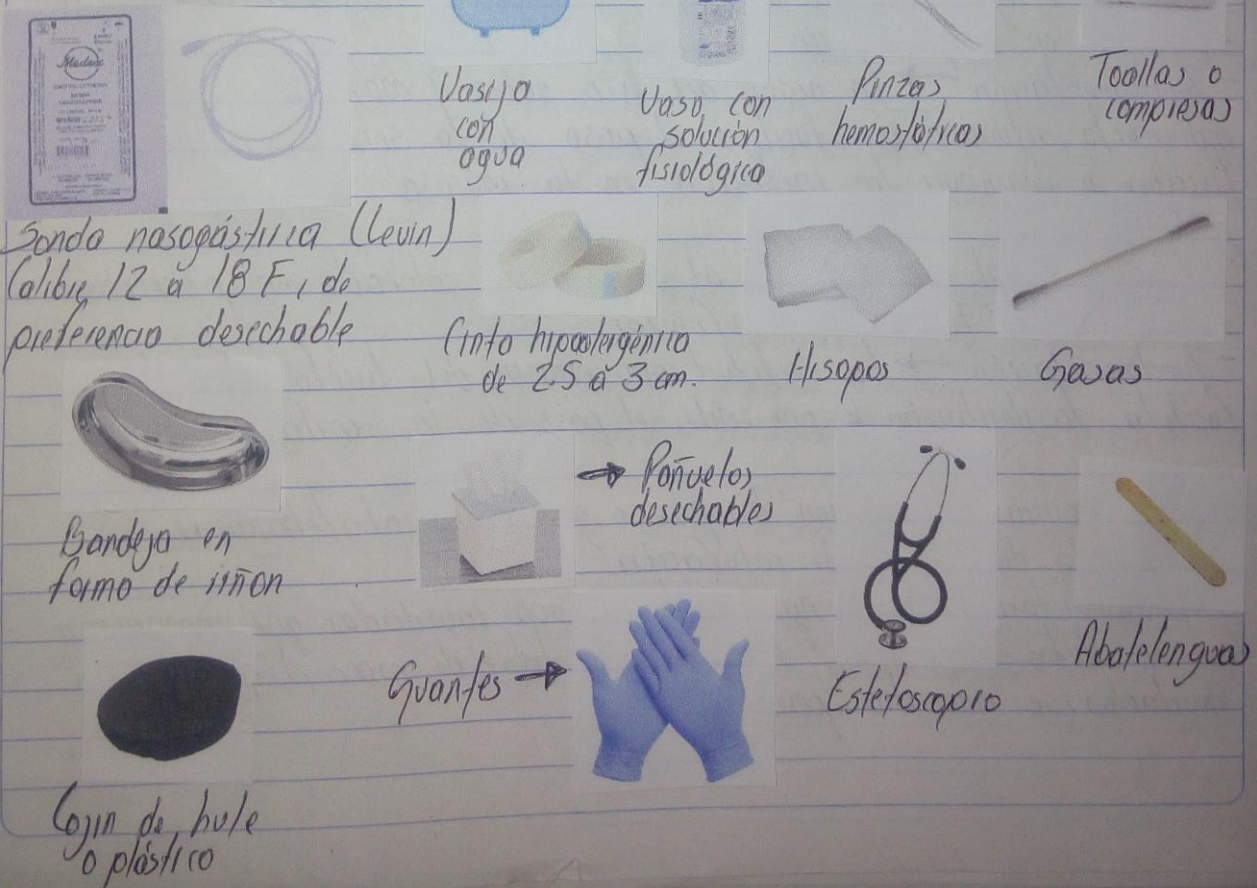 Medex
Vasija
con
agua
Vaso con
solución
fisiológica
Pinzas
hemostáticas
Toallas o
compresas
Sonda nasogástrica (Levin)
Calibre 12 a 18 F, de
preferencia desechable
Cinta hipoalergénica
de 2.5 a 3 cm.
Hisopos
Gasas
Bandeja en
forma de riñon
Pañuelos
desechables
Guantes
Estetoscopio
Abatelenguas
Cojin de hule
o plástico